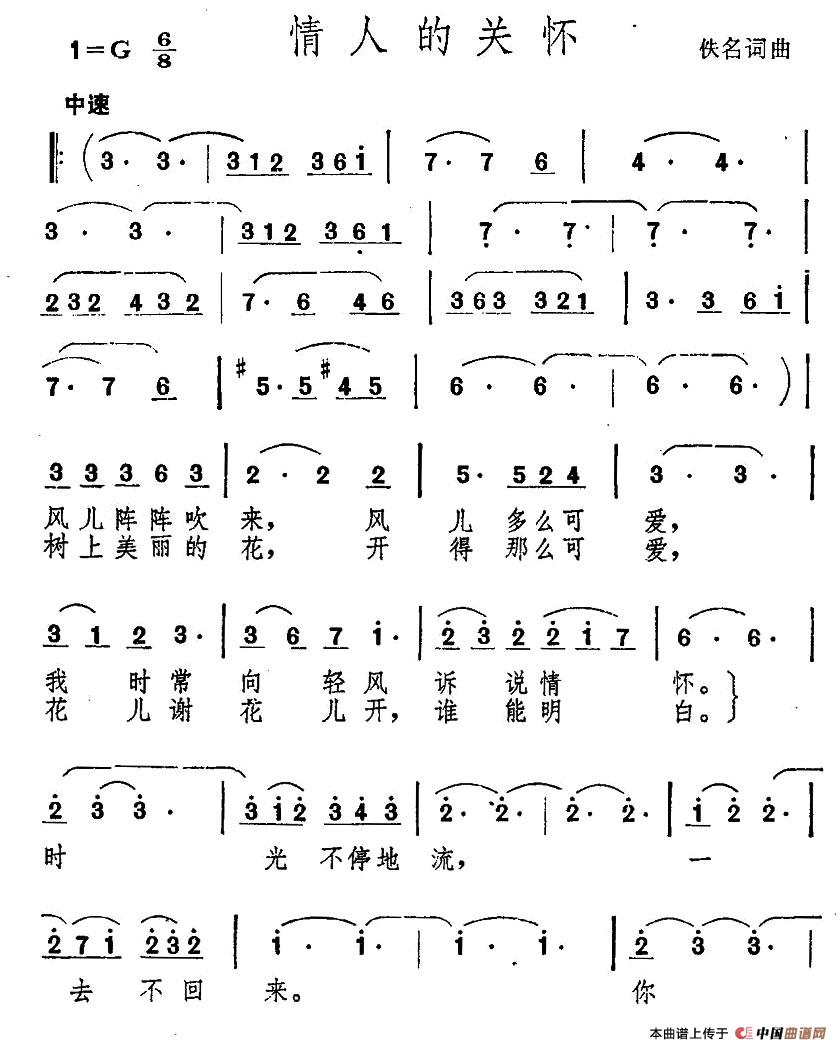 情人的关怀
1=G 6/8
佚名词曲
中速
𝄆 ( 3· 3· | 312 361 | 7·7 6 | 4· 4· |
3· 3· | 312 361 | 7· 7· | 7· 7· |
232 432 | 7·6 46 | 363 321 | 3·3 61 |
7·7 6 | #5·5 #45 | 6· 6· | 6· 6· ) |
3 3 3 6 3 | 2·2 2 | 5· 524 | 3· 3· |
风儿阵阵吹来，风儿多么可爱，
树上美丽的花，开得那么可爱，
3 1 2 3· | 3 6 7 1· | 2 3 2 2 1 7 | 6· 6· |
我时常向轻风诉说情怀。
花儿谢花儿开，谁能明白。
2 3 3· | 312 343 | 2· 2· | 2· 2· | 1 2 2· |
时光不停地流，一
2 7 1 2 3 2 | 1· 1· | 1· 1· | 2 3 3· |
去不回来。你
本曲谱上传于 中国曲谱网